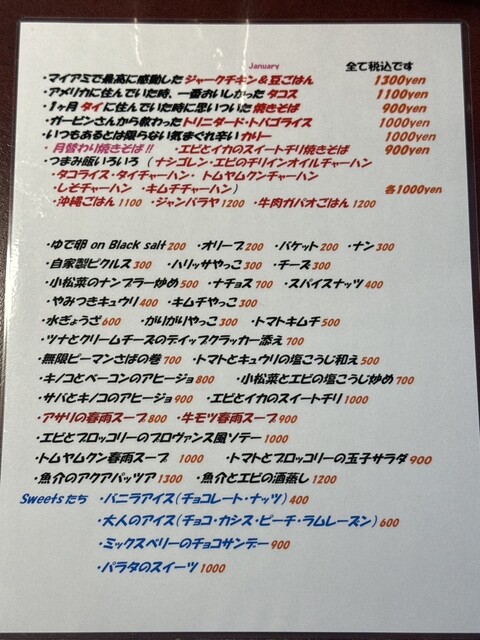 January　全て税込です
・マイアミで最高に感動した ジャークチキン＆豆ごはん 1300yen
・アメリカに住んでいた時、一番おいしかった タコス 1100yen
・1ヶ月 タイ に住んでいた時に思いついた 焼きそば 900yen
・ガーピンさんから教わった トリニダード・トバゴライス 1000yen
・いつもあるとは限らない気まぐれ辛い カリー 1000yen
・月替わり焼きそば!! ・エビとイカのスイートチリ焼きそば 900yen
・つまみ飯いろいろ （ナシゴレン・エビのチリインオイルチャーハン
・タコライス・タイチャーハン・ トムヤムクンチャーハン
・しそチャーハン ・キムチチャーハン） 各1000yen
・沖縄ごはん1100 ・ジャンバラヤ1200 ・牛肉ガパオごはん1200
・ゆで卵 on Black salt 200 ・オリーブ200 ・バケット200 ・ナン300
・自家製ピクルス300 ・ハリッサやっこ300 ・チーズ300
・小松菜のナンプラー炒め500 ・ナチョス700 ・スパイスナッツ400
・やみつきキュウリ400 ・キムチやっこ300
・水ぎょうざ600 ・かりかりやっこ300 ・トマトキムチ500
・ツナとクリームチーズのディップクラッカー添え700
・無限ピーマンさばの巻700 ・トマトとキュウリの塩こうじ和え500
・キノコとベーコンのアヒージョ800 ・小松菜とエビの塩こうじ炒め700
・サバとキノコのアヒージョ900 ・エビとイカのスイートチリ1000
・アサリの春雨スープ800 ・牛モツ春雨スープ900
・エビとブロッコリーのプロヴァンス風ソテー1000
・トムヤムクン春雨スープ 1000 ・トマトとブロッコリーの玉子サラダ900
・魚介のアクアパッツア1300 ・魚介とエビの酒蒸し1200
Sweetsたち ・バニラアイス（チョコレート・ナッツ）400
・大人のアイス（チョコ・カシス・ピーチ・ラムレーズン）600
・ミックスベリーのチョコサンデー900
・パラタのスイーツ1000